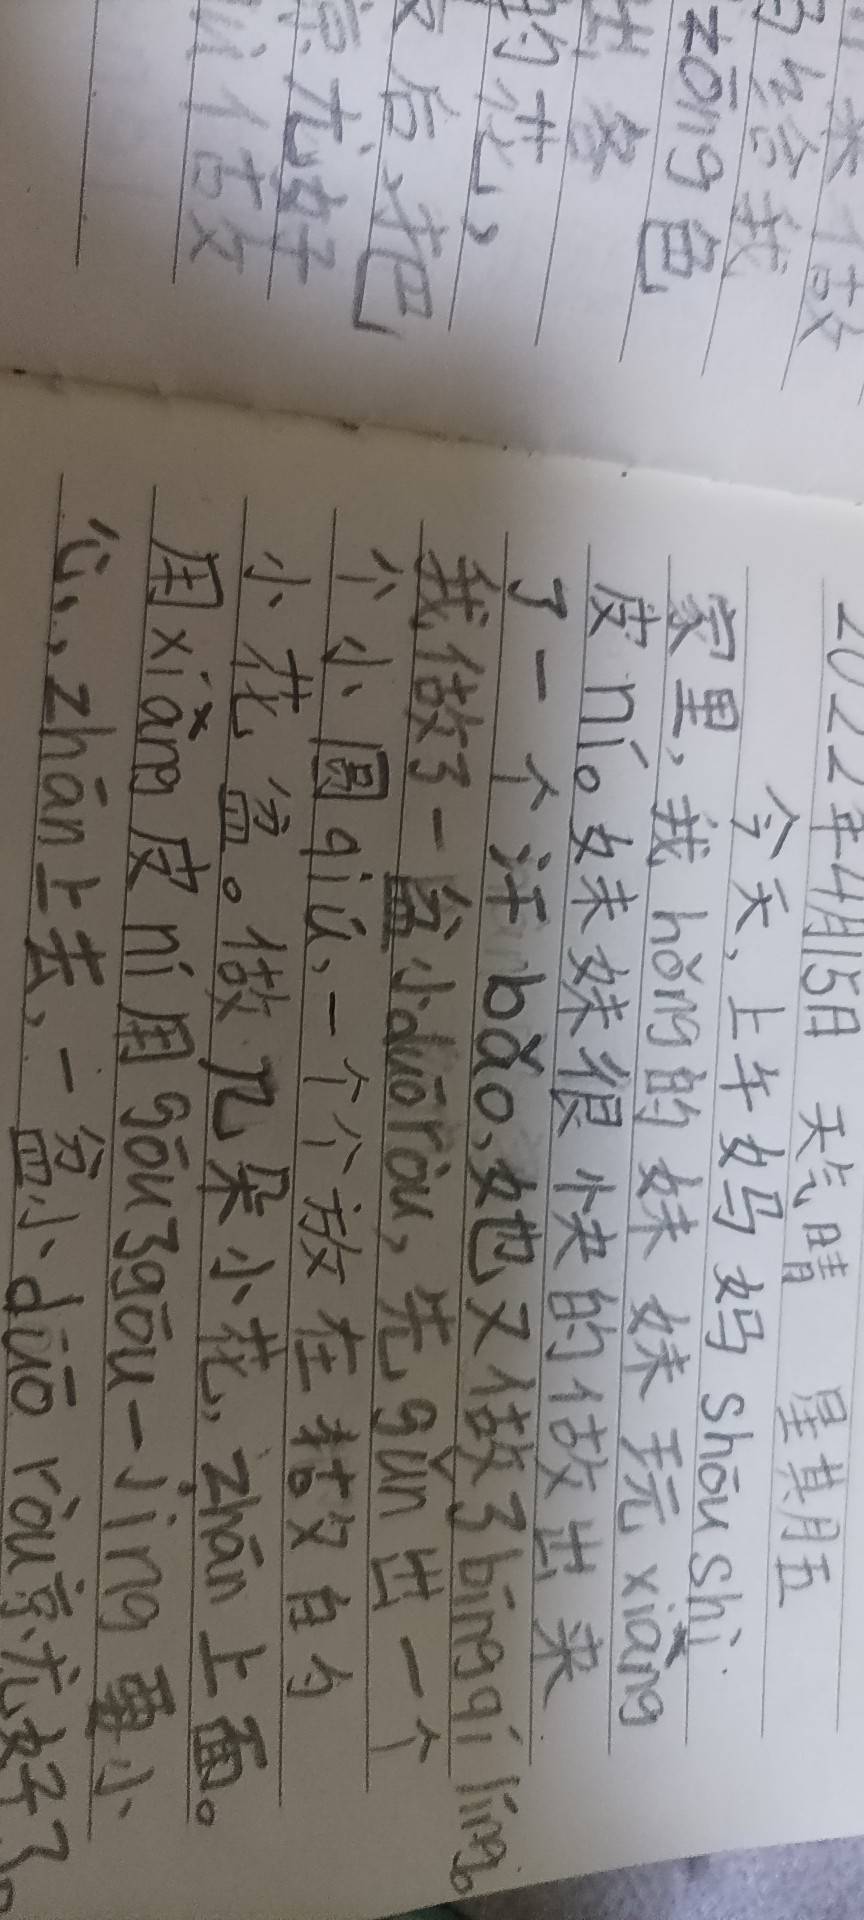 来做
马给我
zōng色
出多
的花、
后把
京尤好
以做
2022年4月15日 天气晴 星其月五
今天,上午妈妈shōu shi
家里,我hǒng的妹妹玩xiǎng
皮ní。妹妹很快的做出来
了一个汗bǎo、她又做了bīng qí líng。
我做了一盆小duō ròu,先gǔn出一个
个小圆qiú、一个个放在粘又自勺
小花盆。做几朵小花,zhān上面。
用xiǎng皮ní用gōu3gōu一jing要小
心、,zhān上去、一盆小duō ròu京尤好了。